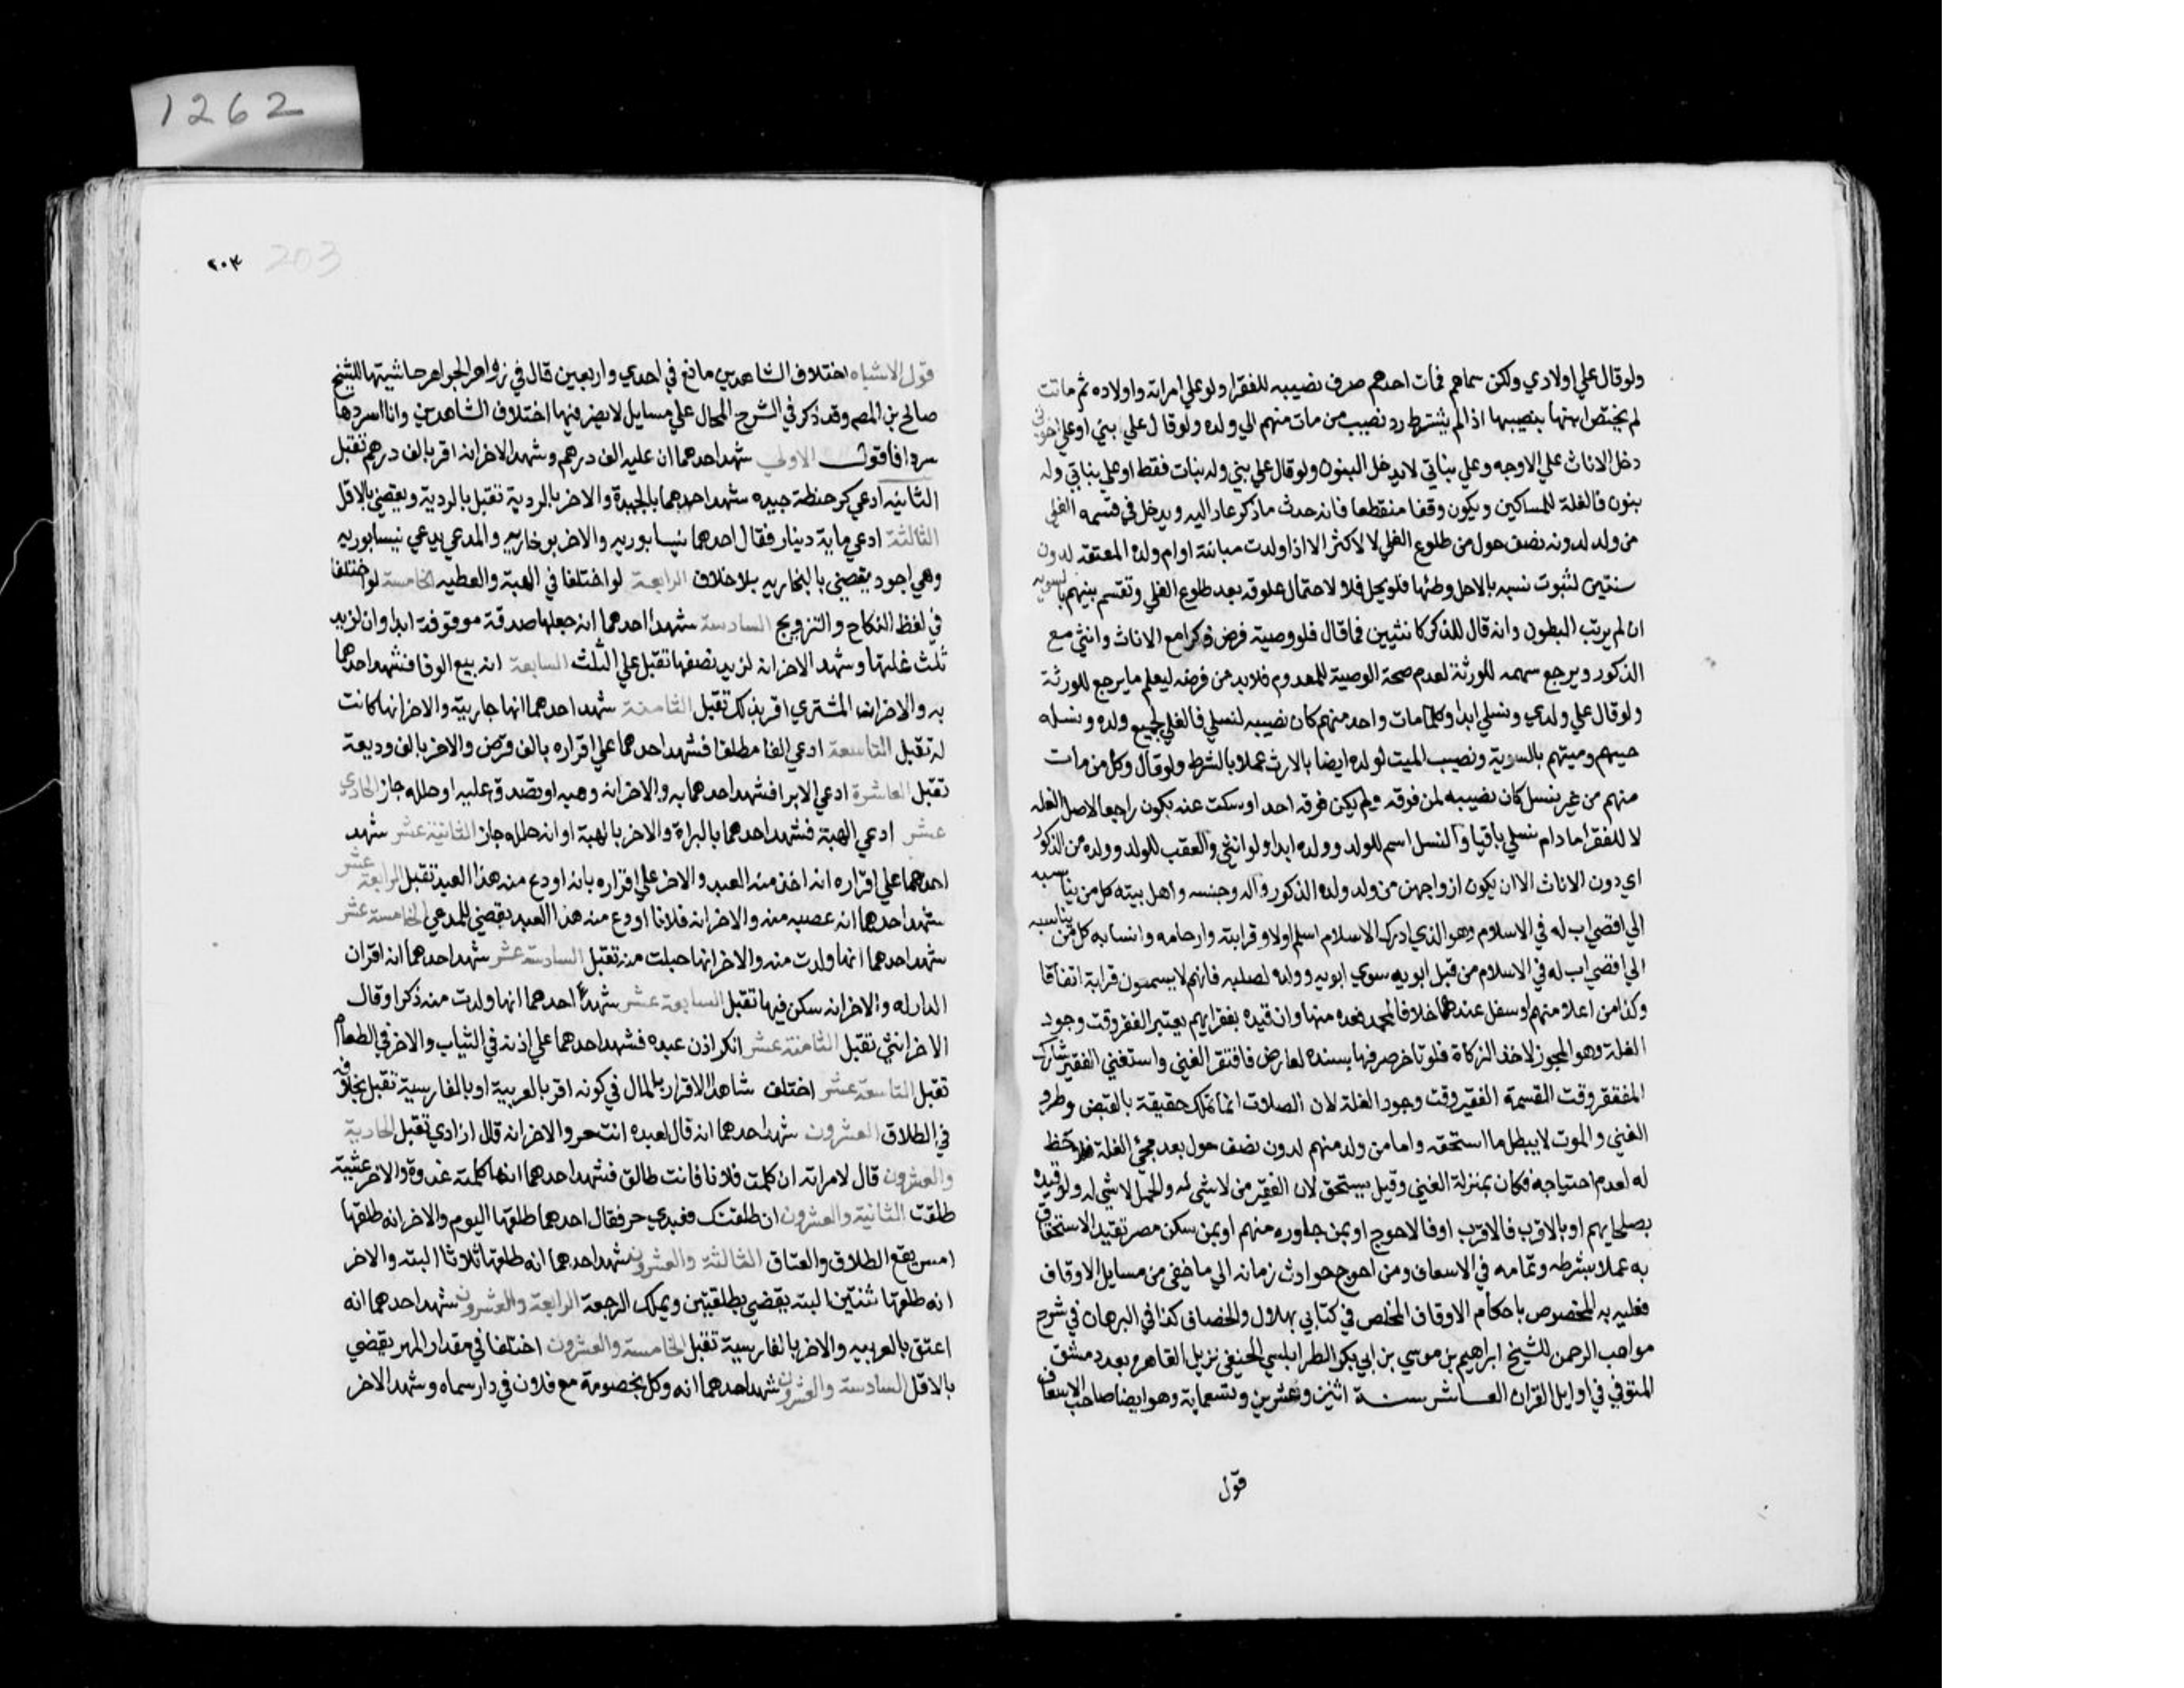 ولو قال علي اولادي ولكن سماهم فمات احدهم صرف نصيبه للفقرا ولو علي امراته واولاده ثم ماتت
لم يختص ابنها بنصيبها اذا لم يشترط رد نصيب من مات منهم الي ولده ولو قال علي بني او علي اخوتي
دخل الاناث علي الاوجه وعلي بناتي لا يدخل البنون ولو قال علي بني وله بنات فقط او علي بناتي وله
بنون فالغلة للمساكين ويكون وقفا منقطعا فان حدث ما ذكر عاد اليه ويدخل في قسمه الغلي
من ولد لدون نصف حول من طلوع الغلي لا لاكثر الا اذا ولدت مبانته او ام ولده المعتقه لدون
سنتين لثبوت نسبه بلا حل وطئها فلو يحل فلا لاحتمال علوقه بعد طلوع الغلي وتقسم بينهم بالسويه
ان لم يرتب البطون وان قال للذكر كانثيين فكما قال فلو وصية فرض ذكرا مع الاناث وانثي مع
الذكور ويرجع سهمه للورثة لعدم صحة الوصية للمعدوم فلابد من فرضه ليعلم ما يرجع للورثة
ولو قال علي ولدي ونسلي ابدا وكلما مات واحد منهم كان نصيبه لنسلي فالغلي لجميع ولده ونسله
حيهم وميتهم بالسوية ونصيب الميت لولده ايضا بالارث عملا بالشرط ولو قال وكل من مات
منهم من غير نسل كان نصيبه لمن فوقه ولم يكن فوقه احد او سكت عنه يكون راجعا لاصل الغله
لا للفقرا ما دام نسلي باقيا والنسل اسم للولد وولده ابدا ولو انثي والعقب للولد وولده من الذكور
اي دون الاناث الا ان يكون ازواجهن من ولد ولده الذكور واله وجنسه واهل بيته كل من يناسبه
الي اقصي اب له في الاسلام وهو الذي ادرك الاسلام اسلم او لا وقرابته وارحامه وانسابه كل من يناسبه
الي اقصي اب له في الاسلام من قبل ابويه سوي ابويه وولده لصلبه فانهم لا يسمون قرابة اتفاقا
وكذا من اعلا منهم او سفل عندهما خلافا لمحمد فعده منها وان قيده بفقرايهم يعتبر الفقر وقت وجود
الغلة وهو المجوز لاخذ الزكاة فلو تاخر صرفها سنين لعارض فافتقر الغني واستغني الفقير شارك
المفتقر وقت القسمة الفقير وقت وجود الغلة لان الصلات انما تملك حقيقة بالقبض وطرو
الغني والموت لا يبطل ما استحقه واما من ولد منهم لدون نصف حول بعد مجئ الغلة فلا حظ
له لعدم احتياجه فكان بمنزلة الغني وقيل يستحق لان الفقير من لا شي له والحمل لا شي له ولو قيده
بصلحايهم او بالاقرب فالاقرب او فالاحوج او بمن جاوره منهم او بمن سكن مصر تقيد الاستحقاق
به عملا بشرطه وتمامه في الاسعاف ومن احوج حوادث زمانه الي ما خفي من مسايل الاوقاف
فعليه به المخصوص باحكام الاوقاف الملخص في كتابي بهلال والخصاف كذا في البرهان في شرح
مواهب الرحمن للشيخ ابراهيم بن موسي بن ابي بكر الطرابلسي الحنفي نزيل القاهره بعد دمشق
المتوفي في اوايل القران العاشر سنة اثنين وعشرين وتسعماية وهو ايضا صاحب الاسعاف
قول
1262
٢٠٣ 203
قول الاشباه اختلاف الشاهدين مانع في احدي واربعين قال في زواهر الجواهر حاشيتها للشيخ
صالح بن المص وقد ذكر في الشرح المحال علي مسايل لا يضر فيها اختلاف الشاهدين وانا اسردها
سردا فاقول الاولي شهد احدهما ان عليه الف درهم وشهد الاخر انه اقر بالف درهم تقبل
الثانيه ادعي كر حنطة جيده شهد احدهما بالجيدة والاخر بالردية تقبل بالردية ويقضي بالاقل
الثالثة ادعي ماية دينار فقال احدهما نيسابوريه والاخر بوخاريه والمدعي يدعي نيسابوريه
وهي اجود يقضي بالبخاريه بلا خلاف الرابعة لو اختلفا في الهبة والعطيه الخامسة لو اختلفا
في لفظ النكاح والتزويج السادسة شهدا احدهما انه جعلها صدقة موقوفة ابدا وان لزيد
ثلث غلتها وشهد الاخر انه لزيد نصفها تقبل علي الثلث السابعة انه بيع الوفا فشهد احدهما
به والاخر انه المشتري اقر بذلك تقبل الثامنة شهد احدهما انها جاريته والاخر انها كانت
له تقبل التاسعة ادعي الفا مطلقا فشهد احدهما علي اقراره بالف قرض والاخر بالف وديعة
تقبل العاشرة ادعي الابرا فشهد احدهما به والاخر انه وهبه او تصدق عليه او حلله جاز الحادي
عشر ادعي الهبة فشهد احدهما بالبراة والاخر بالهبة او انه حلله جاز الثانية عشر شهد
احدهما علي اقراره انه اخذ منه العبد والاخر علي اقراره بانه اودع منه هذا العبد تقبل الرابعة عشر
شهد احدهما انه غصبه منه والاخر انه فلانا اودع منه هذا العبد يقضي للمدعي الخامسة عشر
شهد احدهما انها ولدت منه والاخر انها حبلت منه تقبل السادسة عشر شهد احدهما انه اقر ان
الدار له والاخر انه سكن فيها تقبل السابعة عشر شهدا احدهما انها ولدت منه ذكرا وقال
الاخر انثي تقبل الثامنة عشر انكر اذن عبده فشهد احدهما علي اذنه في الثياب والاخر في الطعام
تقبل التاسعة عشر اختلف شاهدا الاقرار بالمال في كونه اقر بالعربية او بالفارسية تقبل بخلافه
في الطلاق العشرون شهد احدهما انه قال لعبده انت حر والاخر انه قال ازادي تقبل الحادية
والعشرون قال لامراته ان كلمت فلانا فانت طالق فشهد احدهما انها كلمته غدوة والاخر عشية
طلقت الثانية والعشرون ان طلقتك فعبدي حر فقال احدهما طلقها اليوم والاخر انه طلقها
امس يقع الطلاق والعتاق الثالثة والعشرون شهد احدهما انه طلقها ثلاثا البته والاخر
انه طلقها ثنتين البته يقضي بطلقتين ويملك الرجعة الرابعة والعشرون شهد احدهما انه
اعتق بالعربيه والاخر بالفارسية تقبل الخامسة والعشرون اختلفا في مقدار المهر يقضي
بالاقل السادسة والعشرون شهد احدهما انه وكل بخصومة مع فلان في دار سماه وشهد الاخر